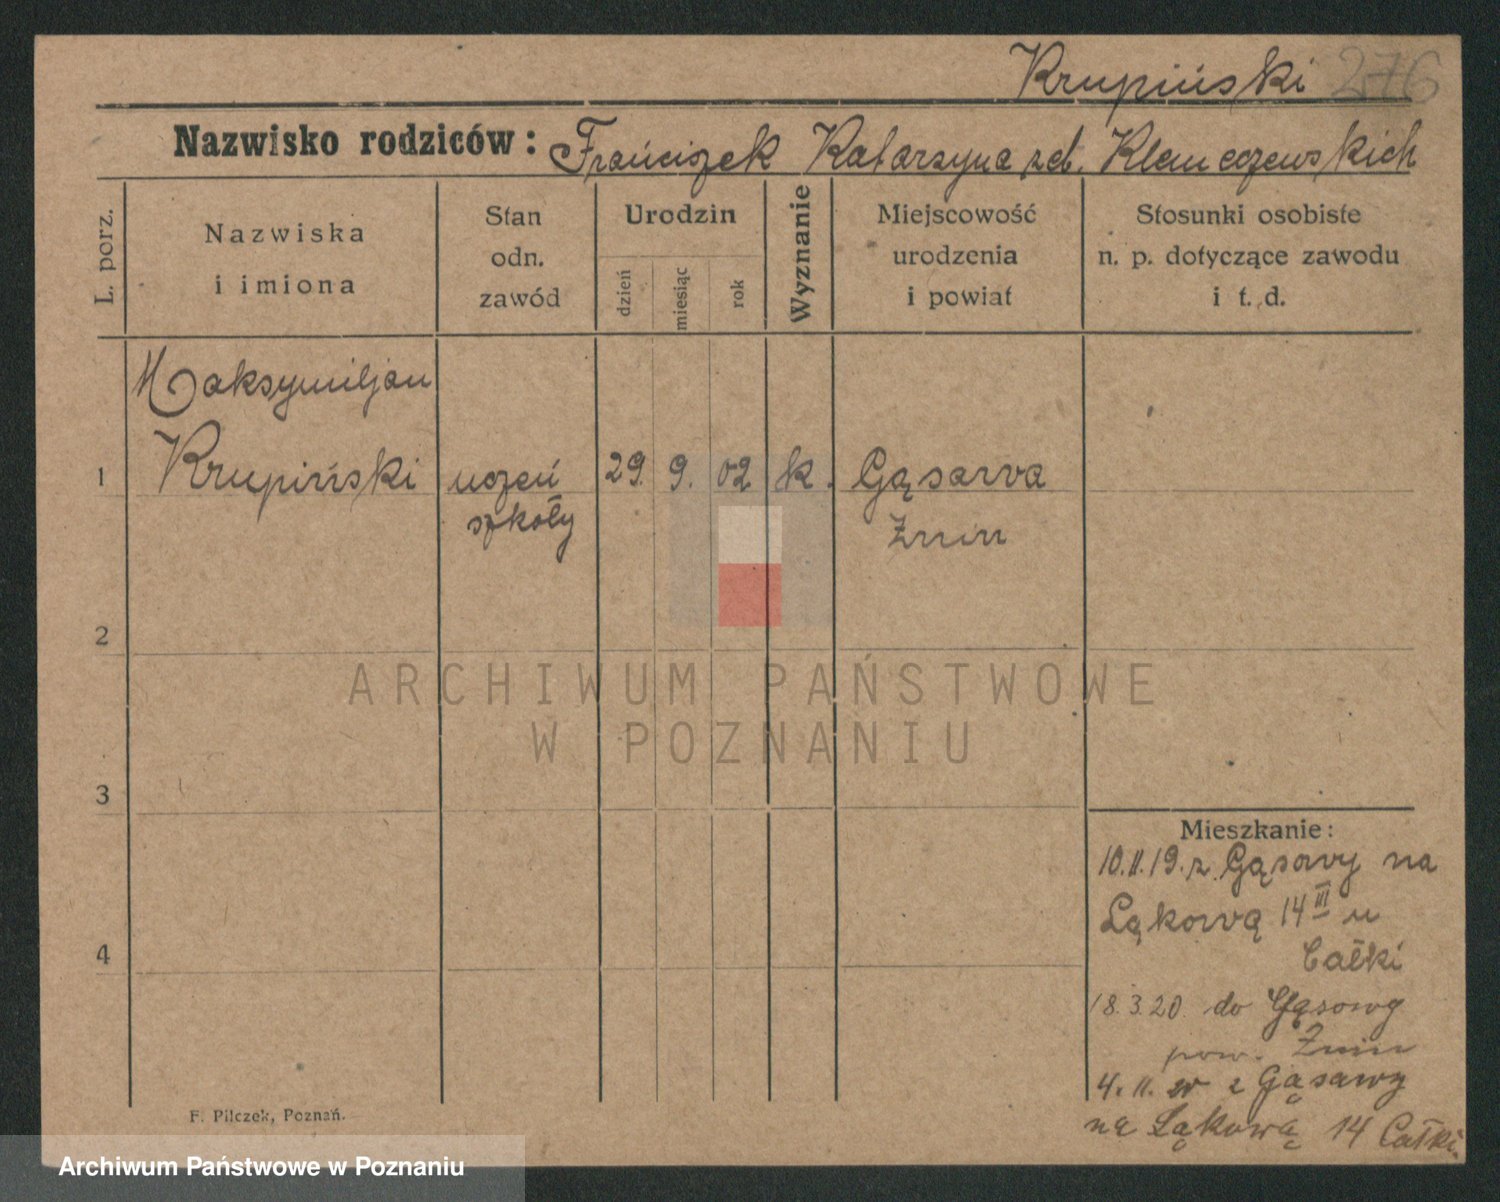 Krupiński 276
Nazwisko rodziców: Frańciszek Katarzyna zeb. Klemczewskich
L. porz.
Nazwiska
i imiona
Stan
odn.
zawód
Urodzin
dzień
miesiąc
rok
Wyznanie
Miejscowość
urodzenia
i powiat
Stosunki osobiste
n. p. dotyczące zawodu
i t. d.
Maksymiljan
1 Krupiński uczeń 29. 9. 02 k. Gąsawa
szkoły Żnin
2
3
4
ARCHIWUM PAŃSTWOWE
W POZNANIU
Mieszkanie:
10.11.19. z Gąsawy na
Łąkową 14 III u
Całki
18.3.20 do Gąsowy
pow. Żnin
4. 11. 20 z Gąsawy
na Łąkową 14 Całki.
F. Pilczek, Poznań.
Archiwum Państwowe w Poznaniu